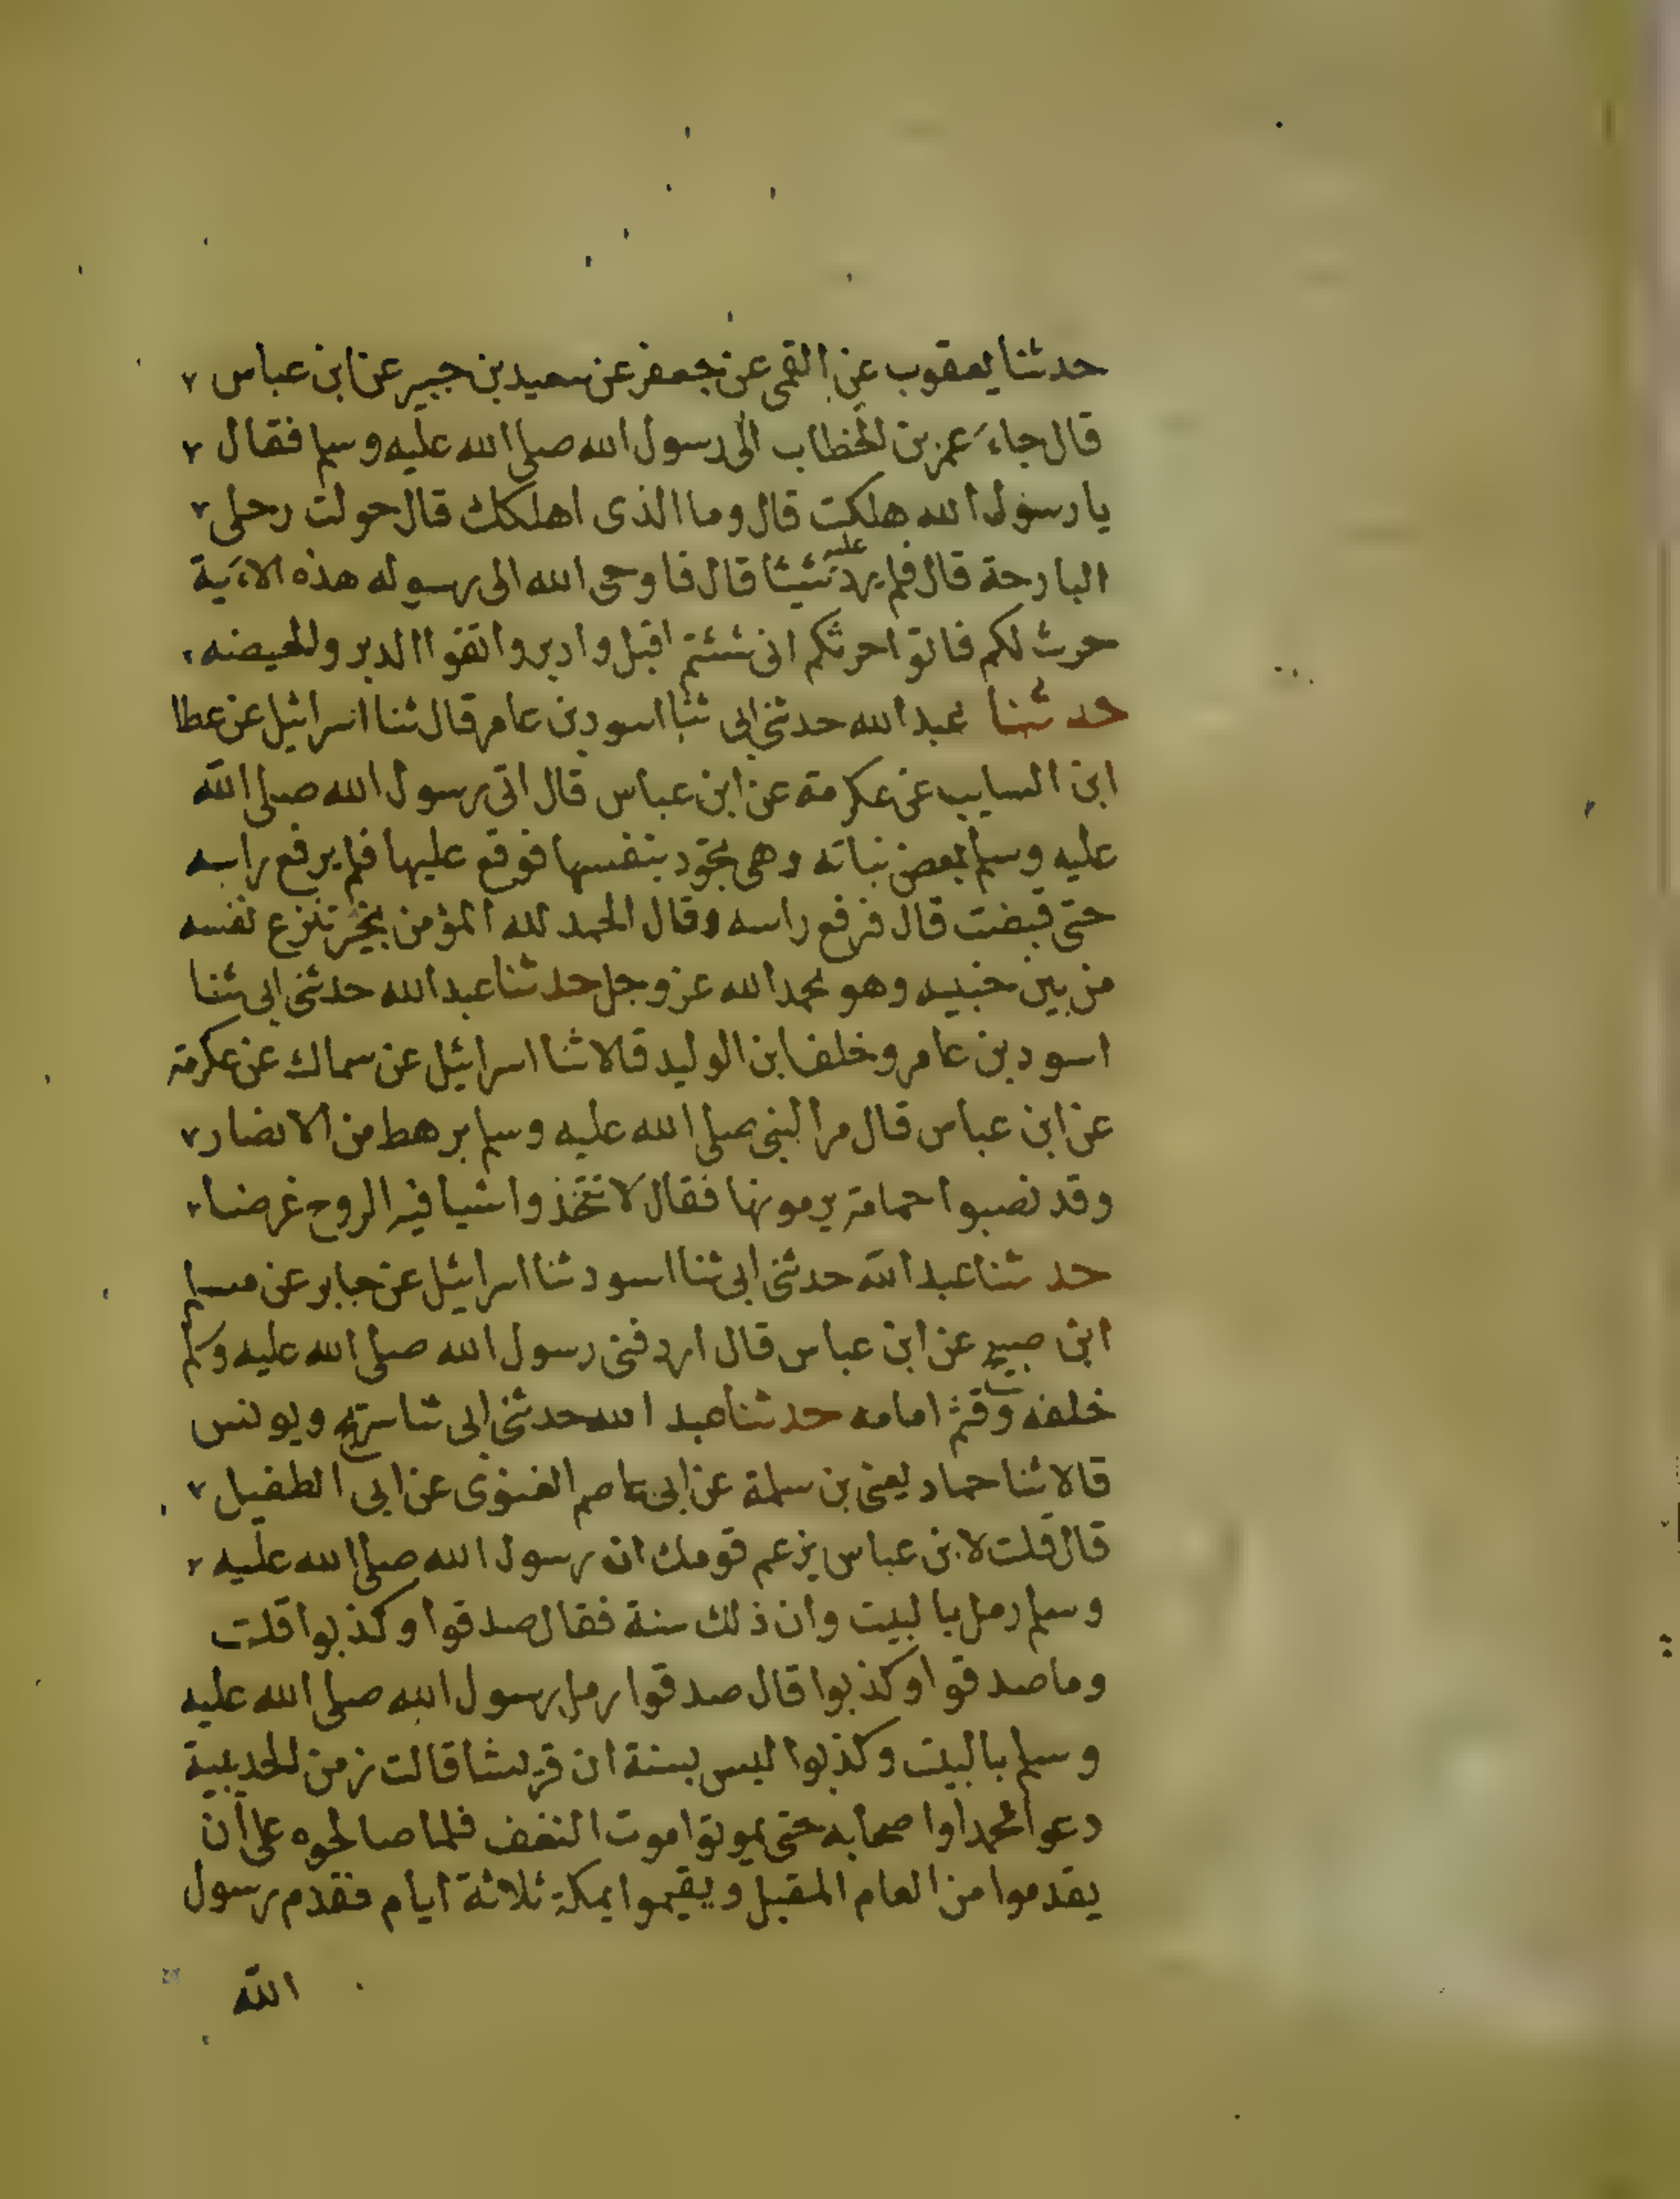 حدثنا يعقوب عن القمى عن جعفر عن سعيد بن جبير عن ابن عباس
قال جاء عمر بن الخطاب الى رسول الله صلى الله عليه وسلم فقال
يا رسول الله هلكت قال وما الذى اهلكك قال حولت رحلى
البارحة قال فلم يرد عليه شيئا قال فاوحى الله الى رسوله هذه الاية
حرث لكم فاتوا حرثكم انى شئتم اقبل وادبر واتقوا الدبر والحيضه
حدثنا عبد الله حدثني ابى ثنا اسود بن عامر قال ثنا اسرائيل عن عطا
ابن السايب عن عكرمة عن ابن عباس قال اتى رسول الله صلى الله
عليه وسلم بعض بناته وهى تجود بنفسها فوقع عليها فلم يرفع راسه
حتى قبضت قال فرفع راسه وقال الحمد لله المؤمن بخير تنزع نفسه
من بين جنبيه وهو يحمد الله عز وجل حدثنا عبد الله حدثنى ابى ثنا
اسود بن عامر وخلف ابن الوليد قالا ثنا اسرائيل عن سماك عن عكرمة
عن ابن عباس قال مر النبى صلى الله عليه وسلم برهط من الانصار
وقد نصبوا حمامة يرمونها فقال لا تتخذوا شيا فيه الروح غرضا
حدثنا عبد الله حدثنى ابى ثنا اسود ثنا اسرائيل عن جابر عن مسلم
ابن صبيح عن ابن عباس قال اردفنى رسول الله صلى الله عليه وسلم
خلفه وقثم امامه حدثنا عبد الله حدثنى ابى ثنا سريج ويونس
قالا ثنا حماد يعنى بن سلمة عن ابى عاصم الغنوى عن ابى الطفيل
قال قلت لابن عباس يزعم قومك ان رسول الله صلى الله عليه
وسلم رمل بالبيت وان ذلك سنة فقال صدقوا وكذبوا قلت
وما صدقوا وكذبوا قال صدقوا رمل رسول الله صلى الله عليه
وسلم بالبيت وكذبوا ليس بسنة ان قريشا قالت زمن الحديبية
دعوا محمدا واصحابه حتى يموتوا موت النغف فلما صالحوه على ان
يقدموا من العام المقبل ويقيموا بمكة ثلاثة ايام فقدم رسول
الله